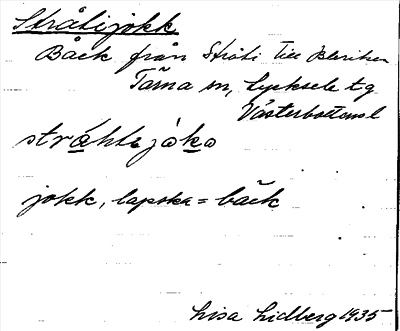 Stråtijokk
Bäck från Stråti till
Tärna sn, Lycksele tg
Västerbottens l
jokk, lapska = bäck
Lisa Lidberg 1935